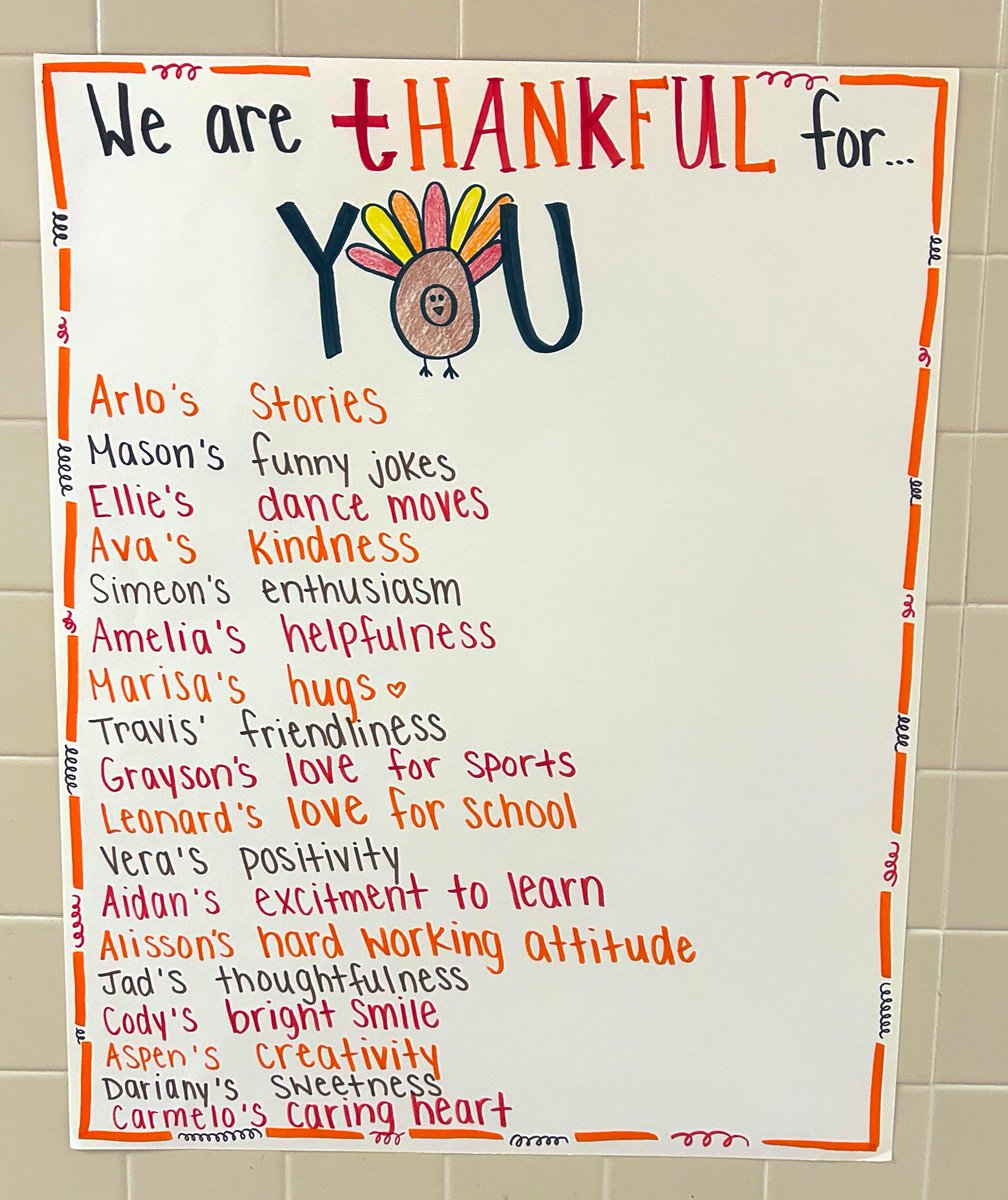 We are tHANKFUL for...
YOU
Arlo's Stories
Mason's funny jokes
Ellie's dance moves
Ava's kindness
Simeon's enthusiasm
Amelia's helpfulness
Marisa's hugs ♡
Travis' friendliness
Grayson's love for sports
Leonard's love for school
Vera's positivity
Aidan's excitment to learn
Alisson's hard working attitude
Jad's thoughtfulness
Cody's bright smile
Aspen's creativity
Dariany's sweetness
Carmelo's caring heart